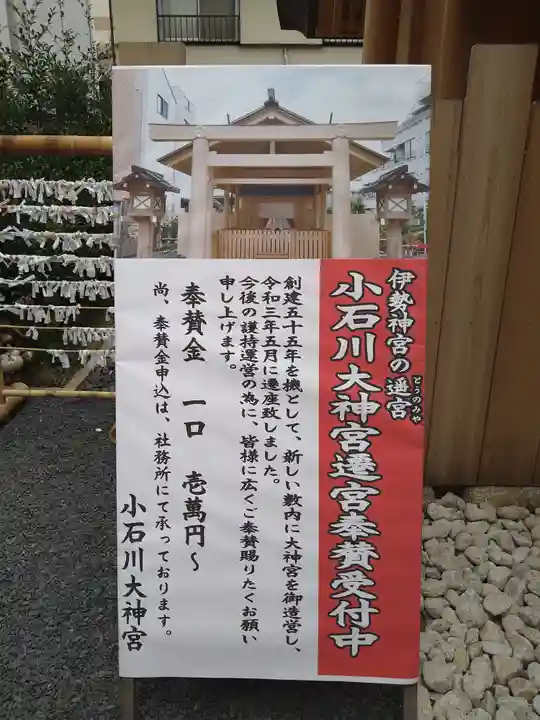 伊勢神宮の遥宮
とうのみや
小石川大神宮遷宮奉賛受付中
創建五十五年を機として、新しい敷内に大神宮を御造営し、
令和三年五月に遷座致しました。
今後の護持運営の為に、皆様に広くご奉賛賜りたくお願い
申し上げます。
奉賛金 一口 壱萬円〜
尚、奉賛金申込は、社務所にて承っております。
小石川大神宮